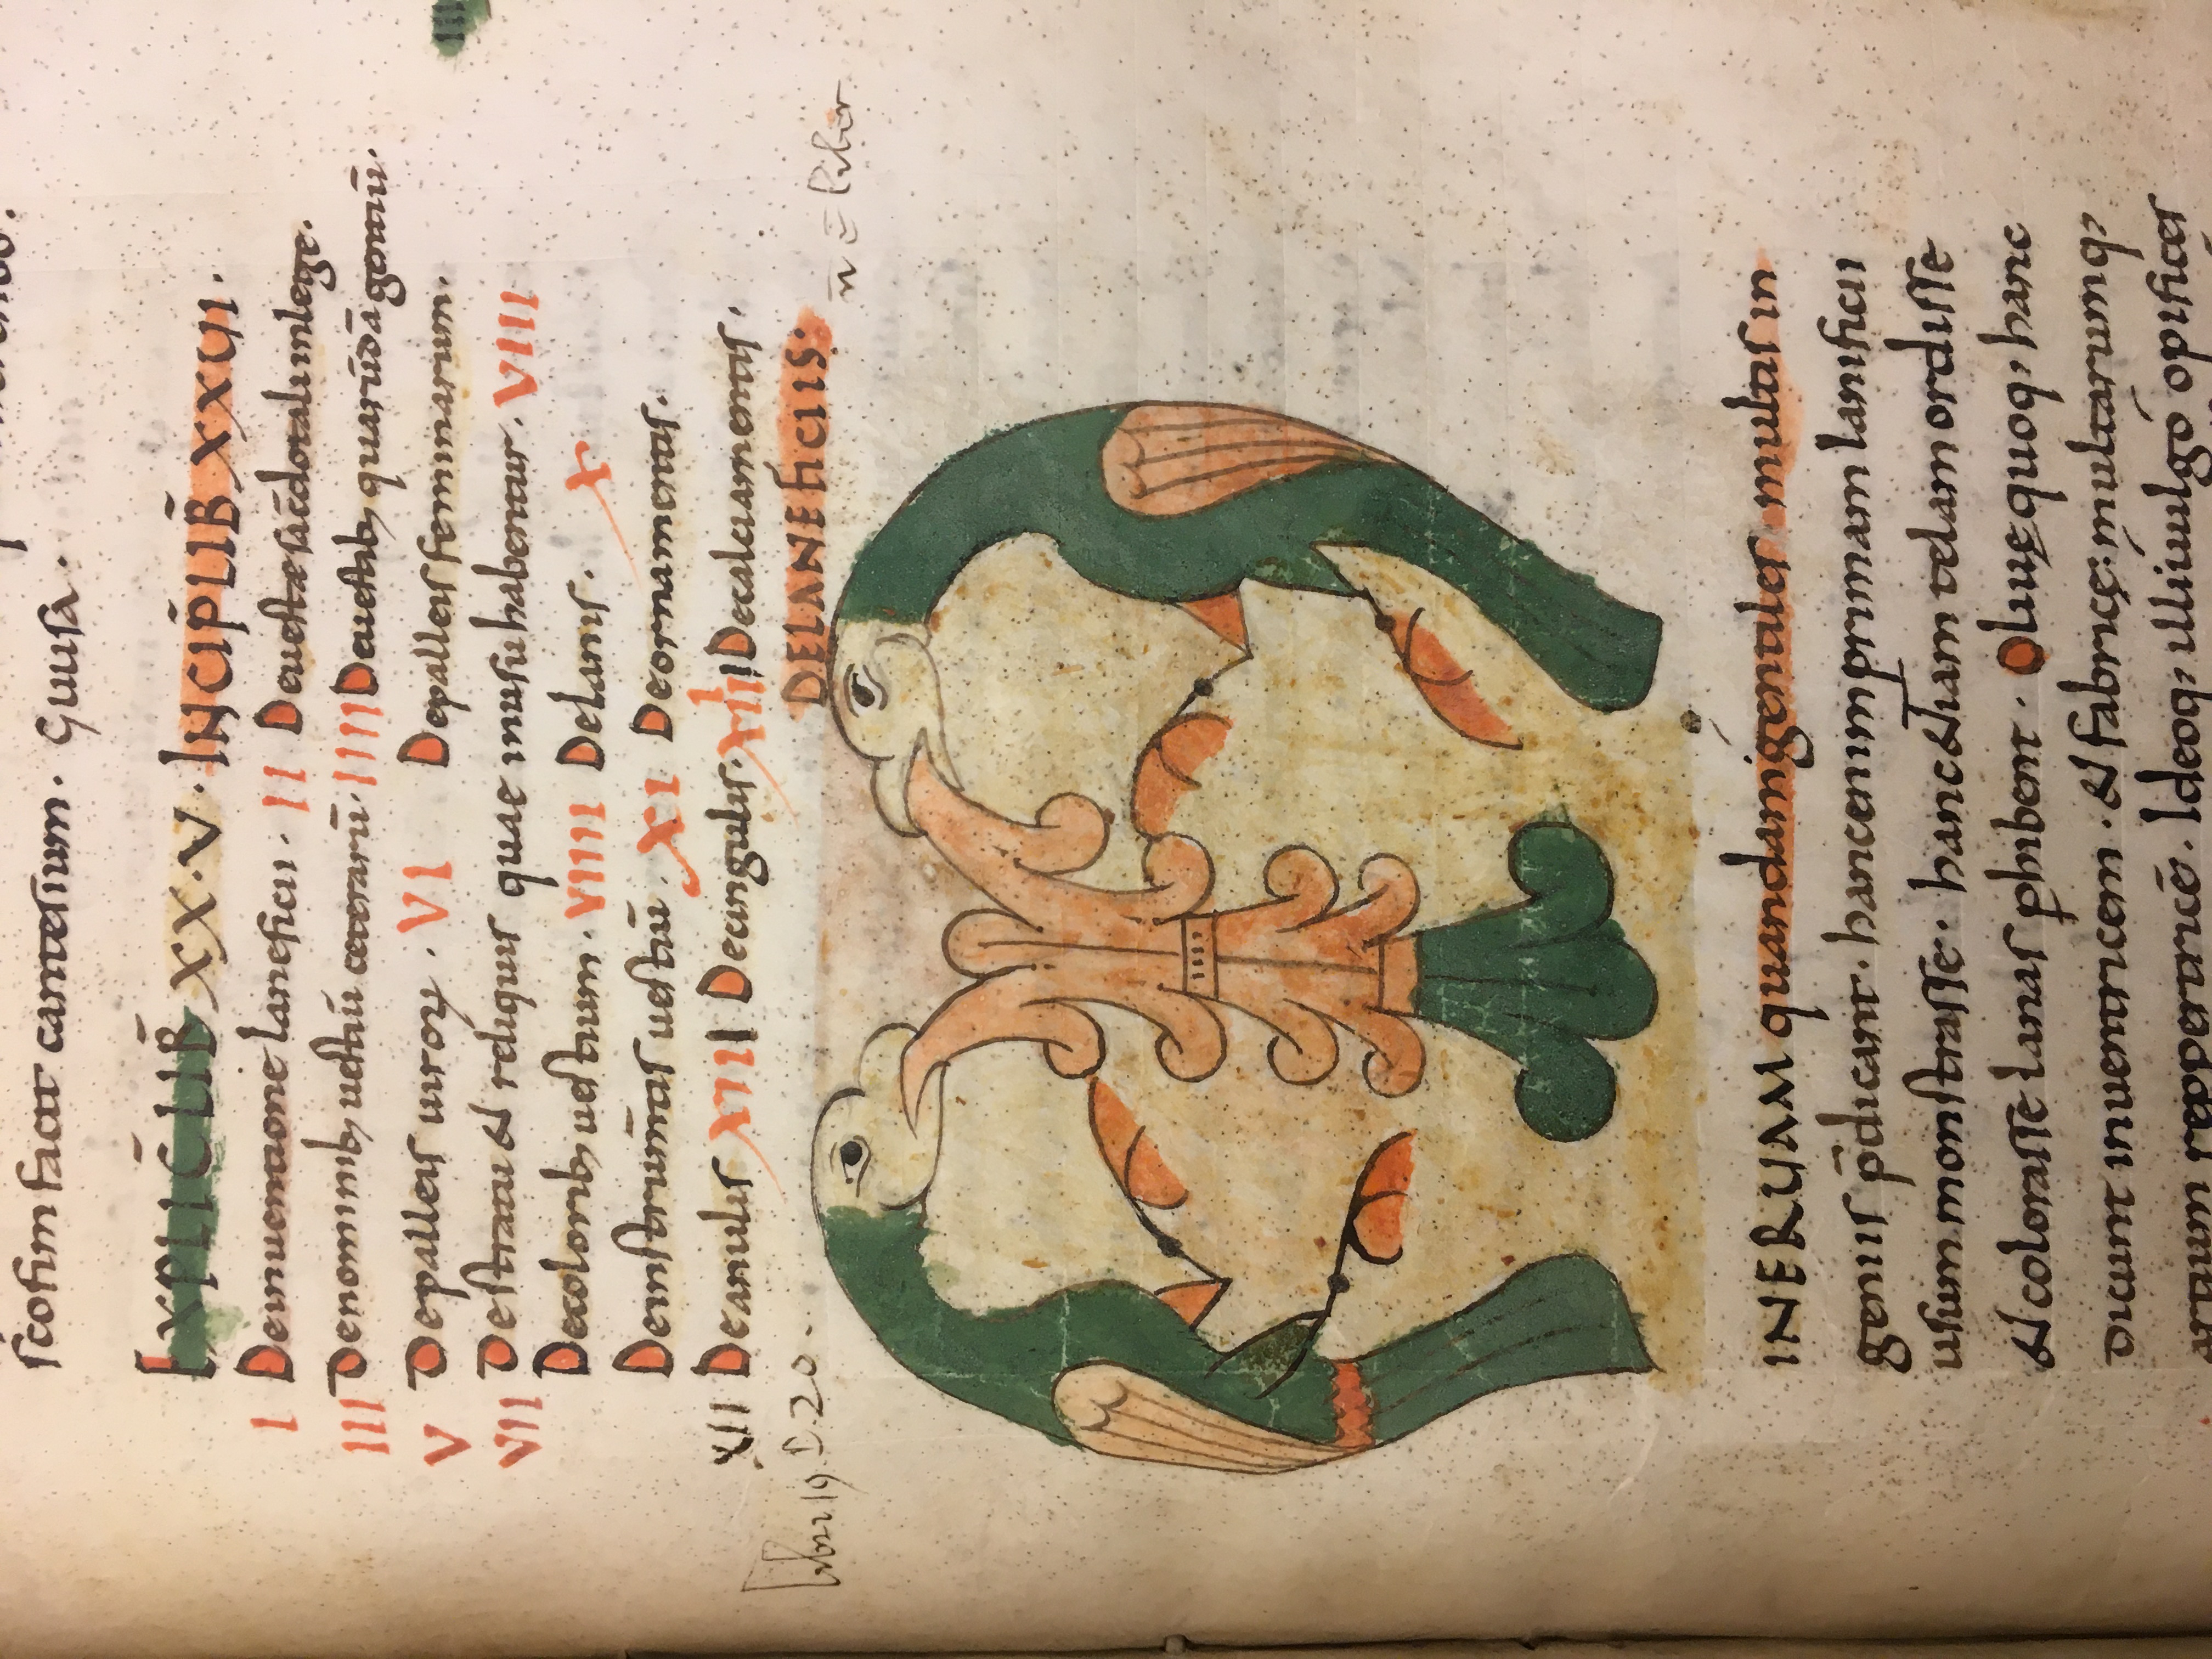 scotim facit cantesium. Guusa.
EXPLICIT LIB XX.V. INCIP LIB XXVI.
I Deinuentione laneficii. II Deueste sac̄dotali inlege.
III Denominib; uestiū ceterarū. IIII Deuestib; quarūdā gentiū.
V Depalleis uiroꝝ. VI Depalleis feminarum.
VII Destratu & reliquis quae inusu habentur. VIII
Decoloribus uestium. VIIII Delanis. X
Deinstrum̄tis uestiū. XI Deornamentis.
XII Deanulis XIII Decingulis. XIIII Decalciamentis.
DELANEFICIIS:
Libri 19. D. 20. n̄ ē liber
INERUAM quandam gentiles multis in
geniis p̄dicant. hanc enim primam lanificii
usum monstrasse. hanc &iam telam ordisse
& colorasse lanas phibent. Oliuę quoq; hanc
dicunt inuentricem. & fabricę: multarumq;
artium reppertricē. Ideoq; illi uulgo opifices